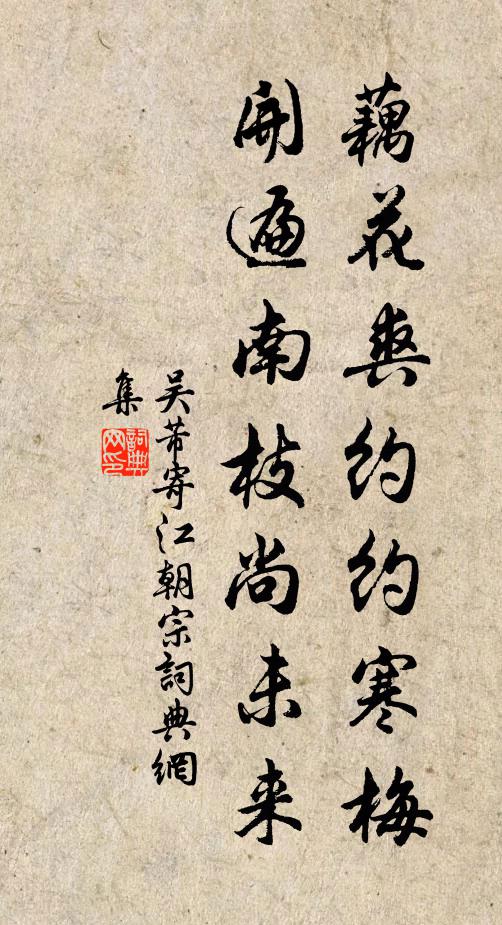 藕花爽约约寒梅
开遍南枝尚未来
吴芾寄江朝宗词典網
集
詞典網印